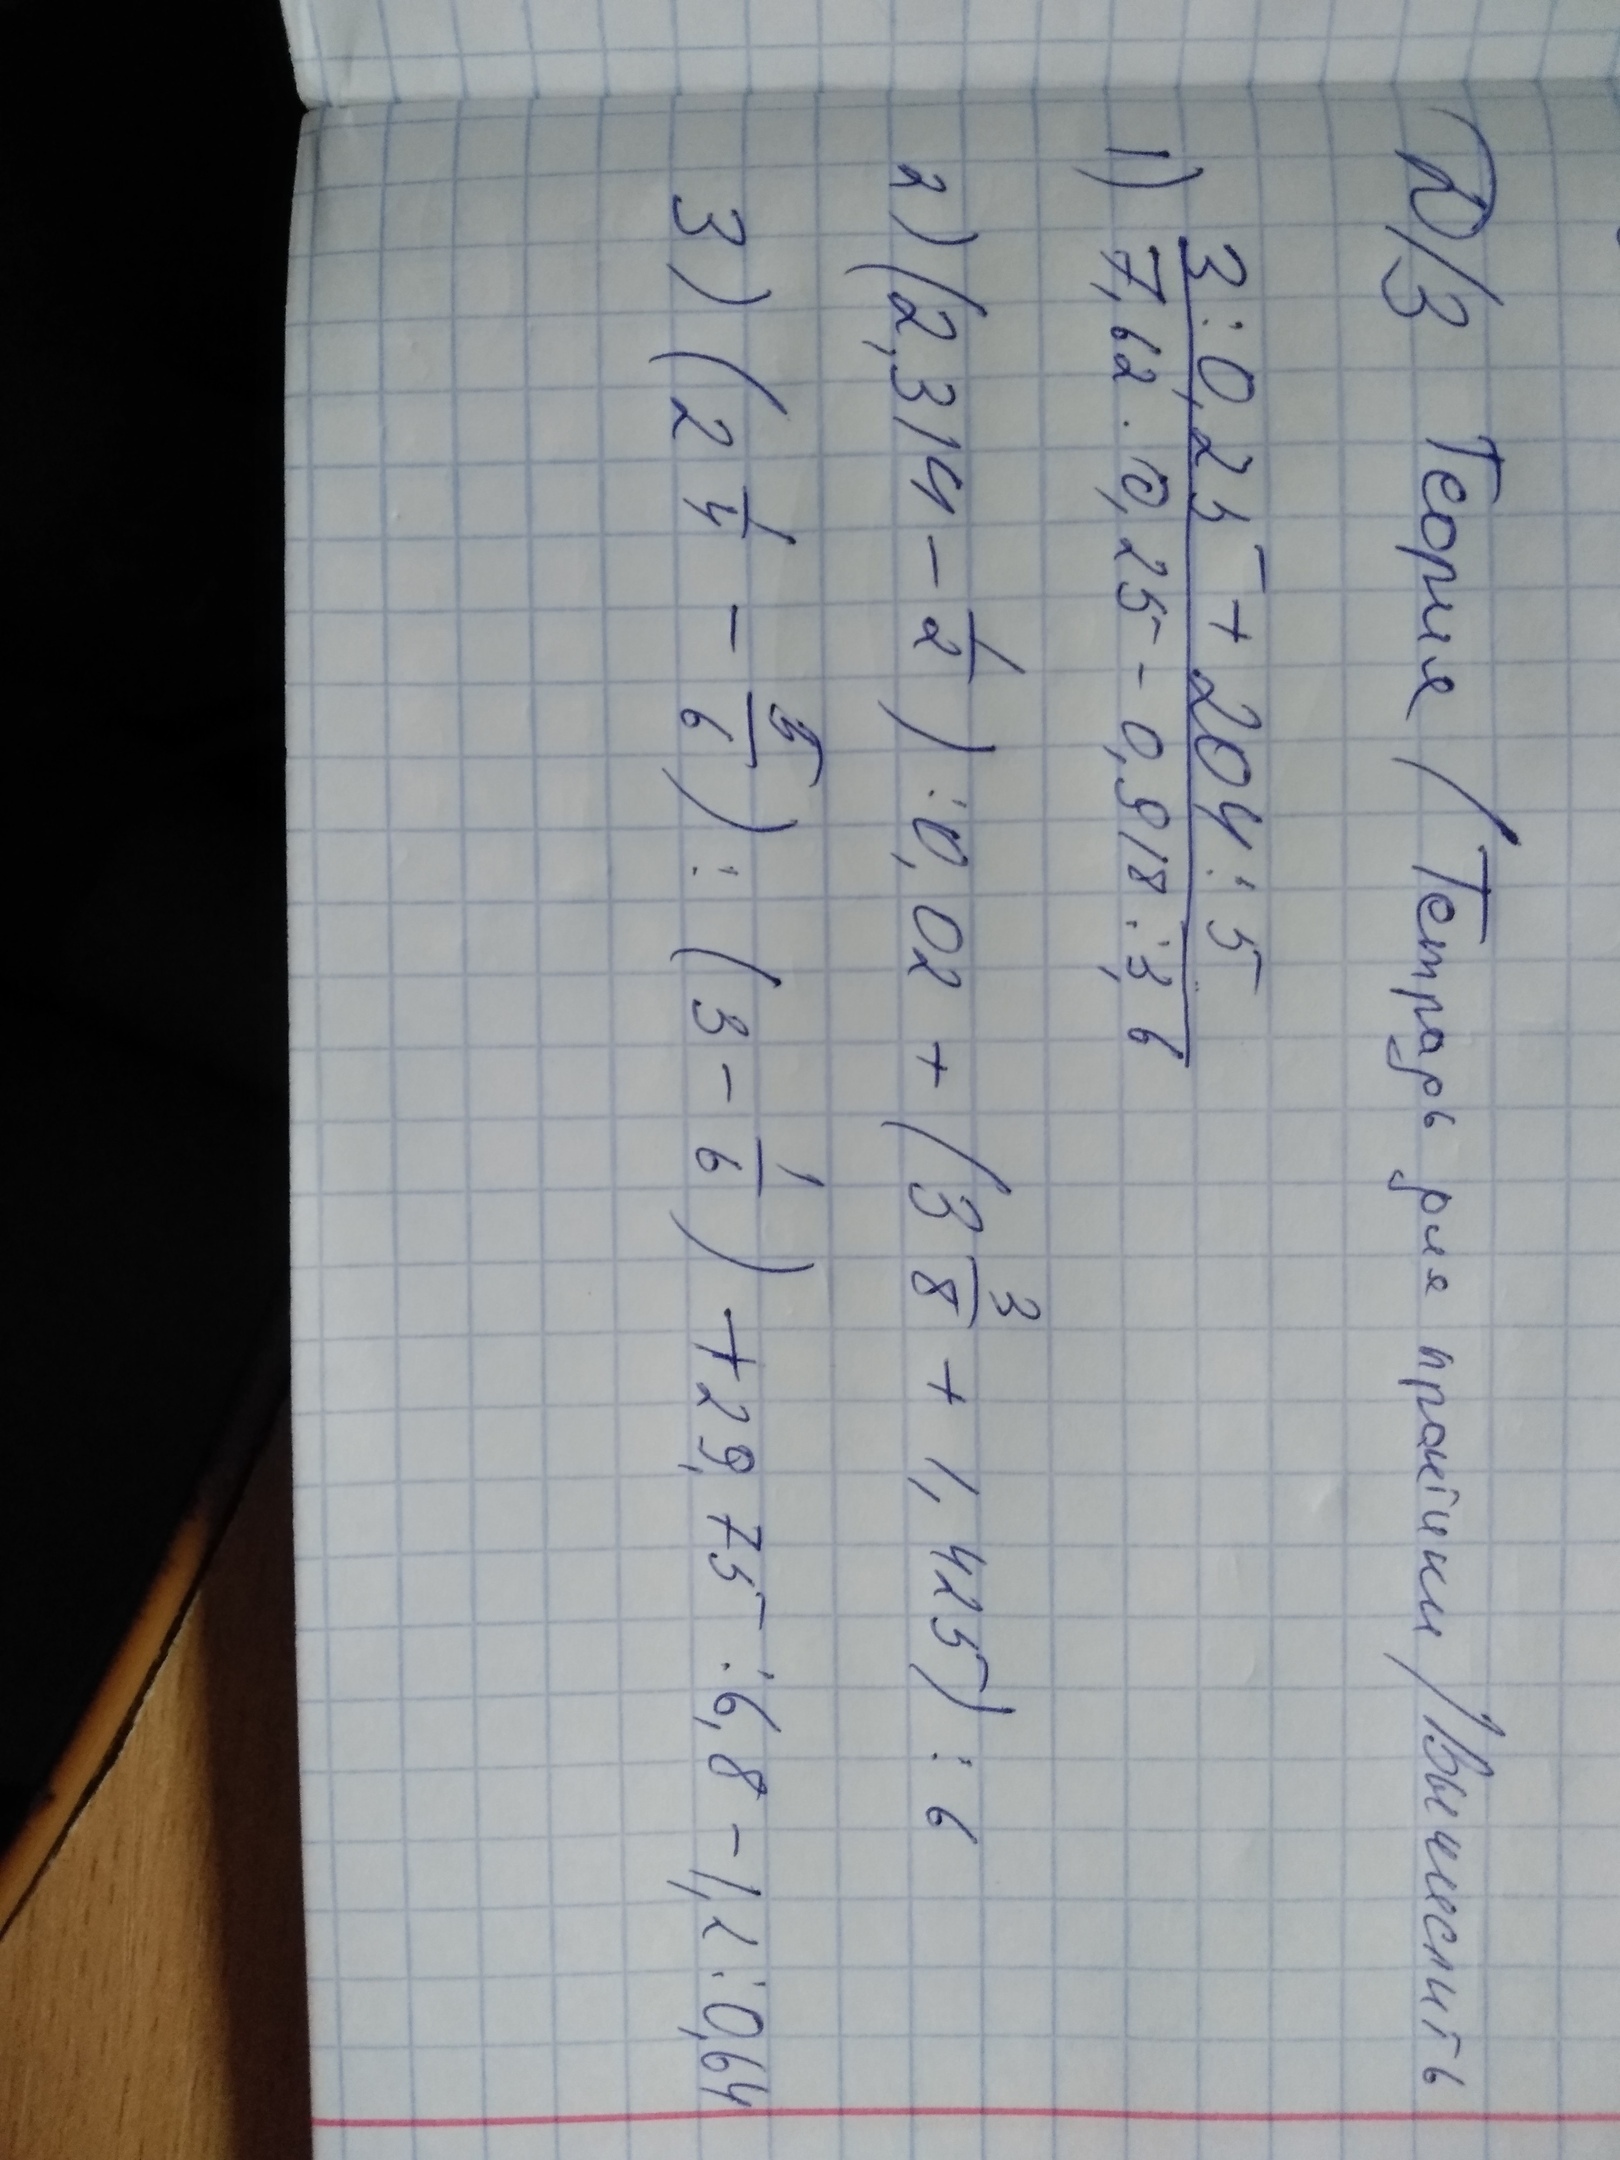 Д/З Теория (Тетрадь для практики) Вычислить
1) 3:0,25+204:5
7,62·0,25-0,918:3,6
2) (2,314-1/2):0,02+(3 3/8+1,425):6
3) (2 1/4-5/6):(3-1/6)+29,75:6,8-1,2:0,64